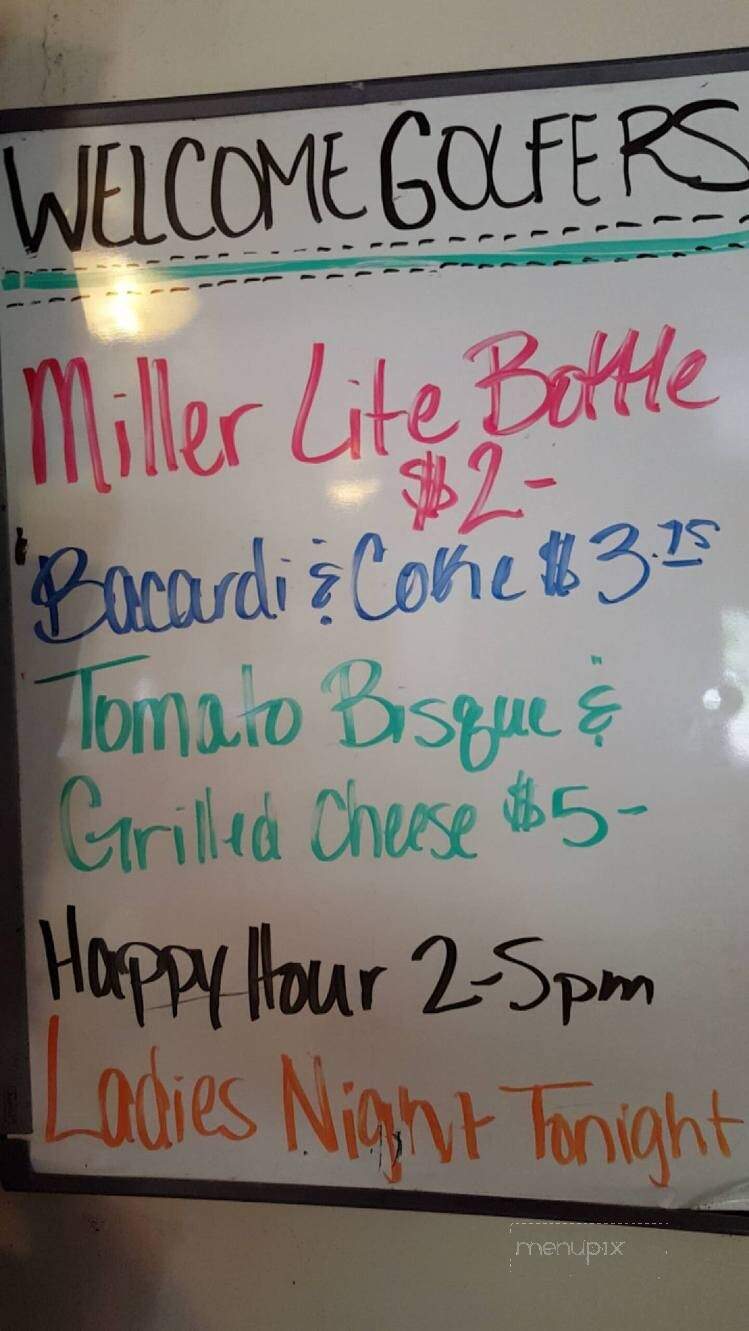 WELCOME GOLFERS
Miller Lite Bottle
$2-
Bacardi & Coke $3.75
Tomato Bisque &
Grilled Cheese $5-
Happy Hour 2-5pm
Ladies Night Tonight
menupix